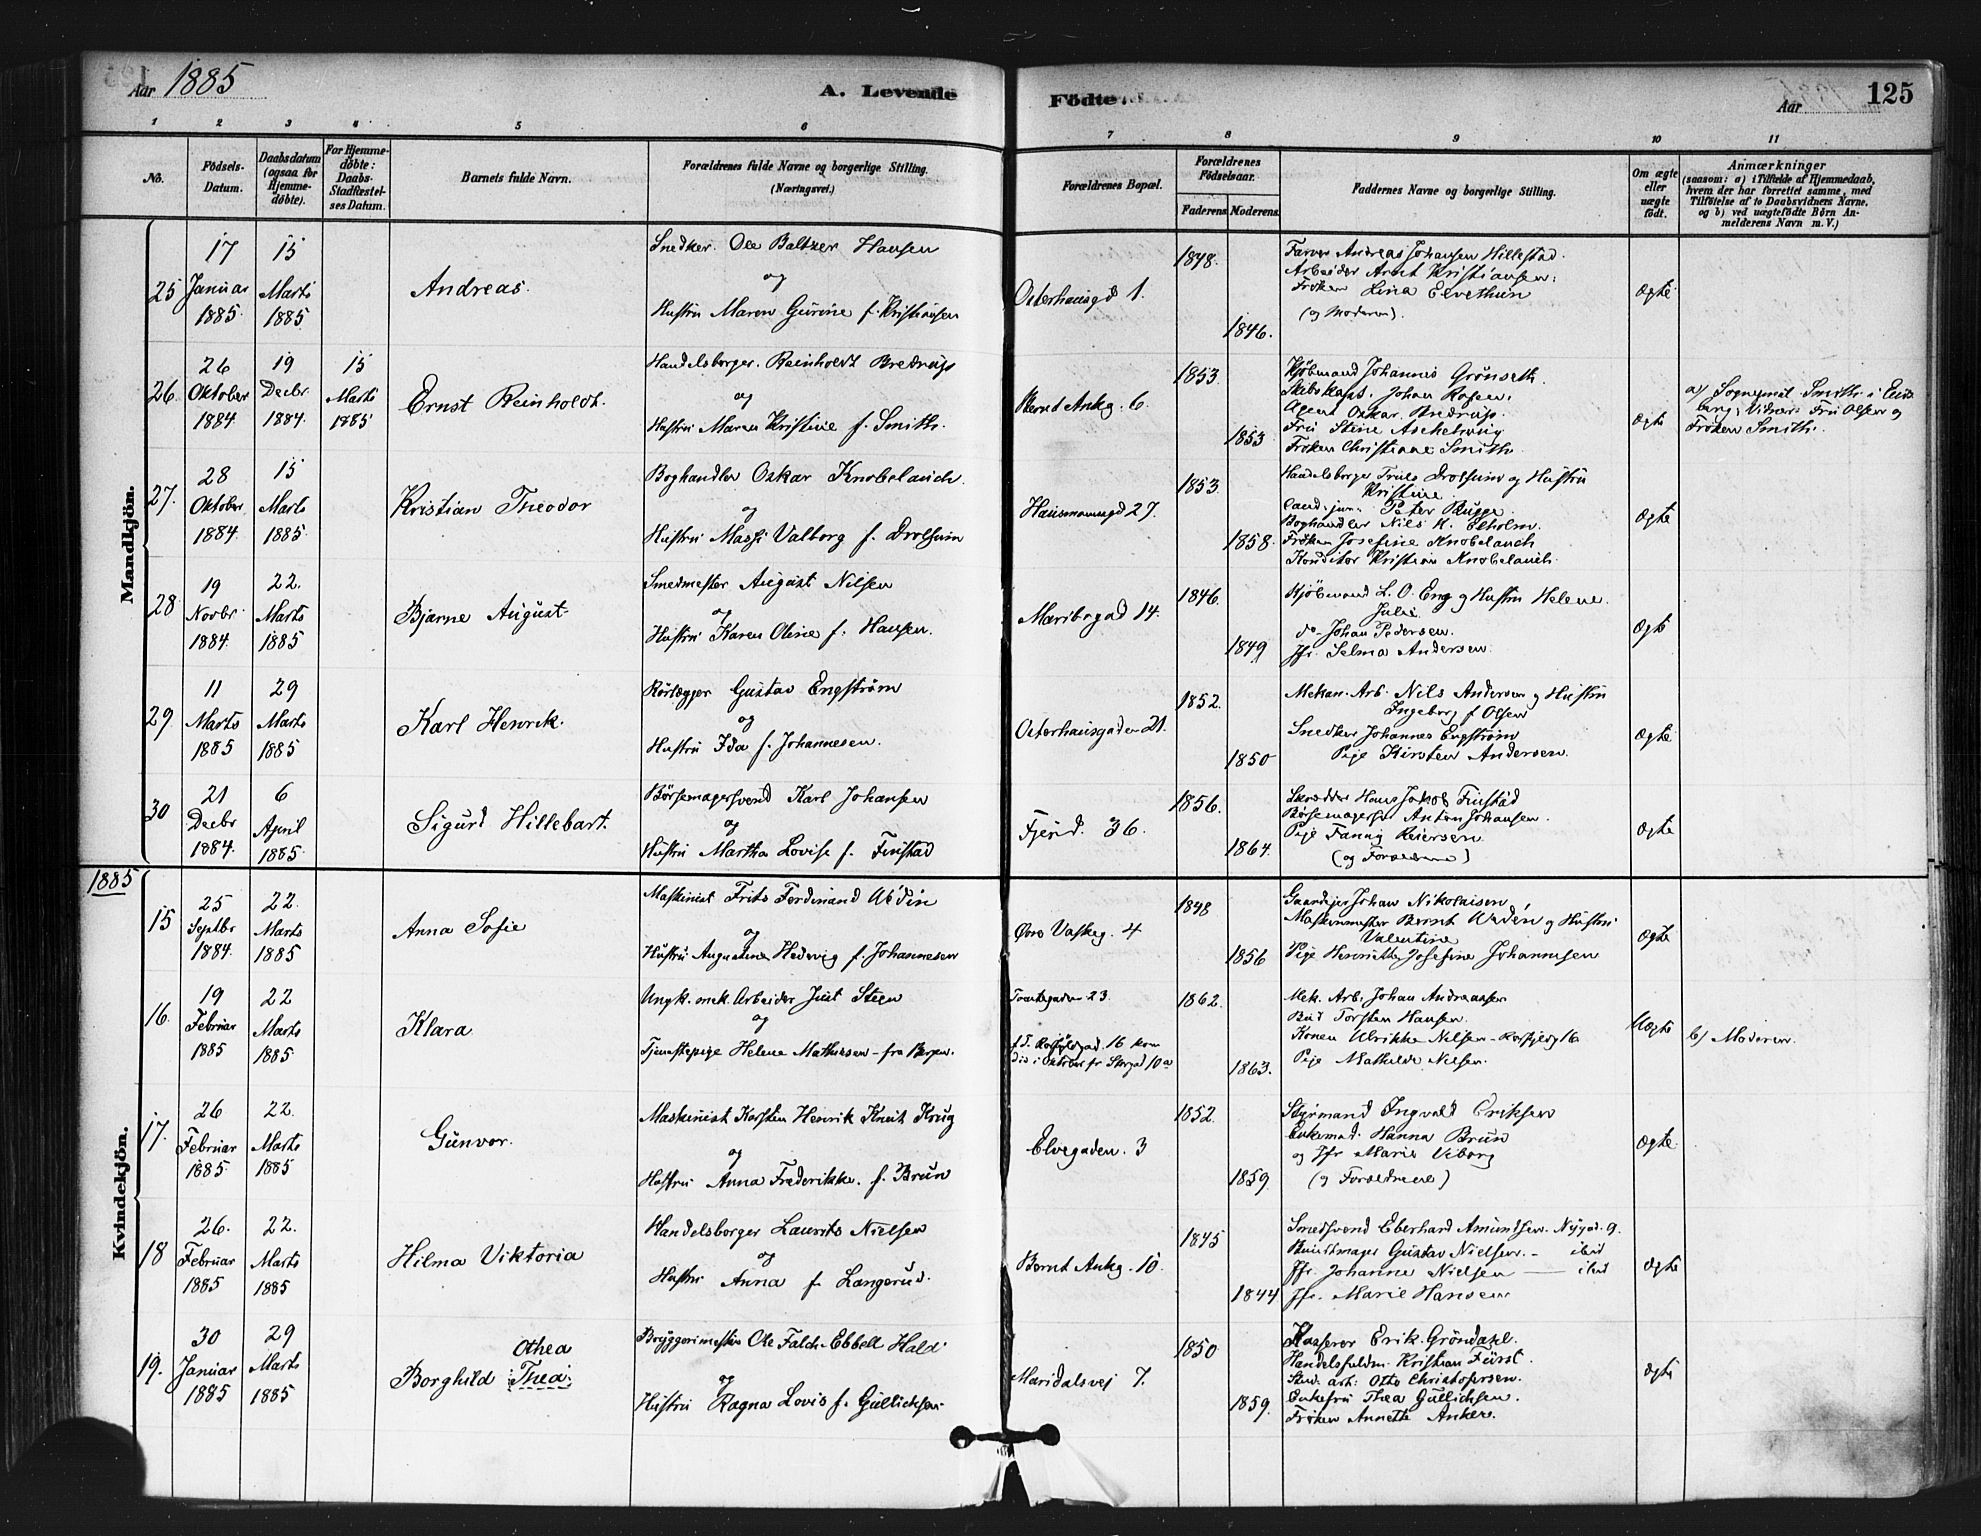 Aar 1885
A. Levende
Födte.
Aar
125
1 2 3 4 5 6 7 8 9 10 11
No.
Födsels-
Datum.
Daabsdatum
(ogsaa for
Hjemme-
døbte).
For Hjemme-
døbte:
Daabs-
Stadfæstel-
ses Datum.
Barnets fulde Navn.
Forældrenes fulde Navne og borgerlige Stilling.
(Næringsvei.)
Forældrenes Bopæl.
Forældrenes
Fødselsaar.
Faderens. Moderens.
Faddernes Navne og borgerlige Stilling.
Om ægte
eller
uægte
født.
Anmærkninger
(saasom: a) i Tilfælde af Hjemmedaab,
hvem der har forrettet samme, med
Tilføielse af to Daabsvidners Navne,
og b) ved uægtefødte Børn An-
melderens Navn m. V.)
Mandkjön.
25
17
Januar
1885.
15
Marts
1885
Andreas.
Snedker. Ole Baltzer Hansen
og
Hustru Maren Gurine f. Kristiansen
Osterhausgd 1.
1848.
1846.
Farver Andreas Johansen Hillestad.
Arbeider Arnt Kristiansen.
Frøken Lina Elvethun
(og Moderen).
Ægte
26.
26
Oktober
1884
19
Decbr
1884.
15
Marts
1885
Ernst Reinholdt.
Handelsborger. Reinholdt Bredrup
og
Hustru Maren Kristine f. Smith.
Bernt Ankg. 6.
1853.
1853
Kjøbmand Johannes Grönseth.
Skibskapt. Johan
Agent Oskar
Fru Stine
Frøken Christiane Smith
Ægte
a) Sogneprest Smith i
Vidner: Fru Olsen og
Frøken Smith.
27.
28
Oktober
1884.
15
Marts
1885.
Kristian Theodor
Boghandler Oskar Knobelauch.
og
Hustru Massi Valborg f. Drolsum
Hausmannsgd 27.
1853.
1858.
Handelsborger Truls Drolsum og Hustru
Kristine.
Cand. jur. Peter Rygge.
Boghandler Nils H. Ekholm.
Frøken Josefine Knobelauch
Konditor Kristian Knobelauch.
Ægte
28
19
Novbr.
1884.
22.
Marts
1885
Bjarne August
Smedmester August Nilsen
og
Hustru Karen Oline f. Hansen.
Maribogad 14.
1846.
1849
Kjöbmand L. O. Eng og Hustru Helene
Julie
do Johan Pedersen.
Jfr. Selma Andersen.
Ægte
29.
11
Marts
1885
29
Marts
1885
Karl Henrik.
Rörlægger Gustav Engström
og
Hustru Ida f. Johannesen.
Osterhausgaden 21.
1852.
1850
Mekan. Arb. Nils Andersen og Hustru
Ingeborg f Olsen
Snedker Johannes Engström
Pige Kirsten Andersen.
Ægte
30
21
Decbr
1884.
6
April
1885
Sigurd Hillebart.
Børsemagersvend Karl Johansen
og
Hustru Martha Lovise f. Finstad
Fjerd. 36.
1856.
1864.
Skrædder Hans Jakob Finstad
Børsemagersv. Anton Johansen.
Pige Fanny Reiersen
(og Forældrene)
Ægte
1885
Kvindekjön.
15
25
Septbr
1884.
22.
Marts
1885
Anna Sofie
Maskinist Frits Ferdinand Wedin
og
Hustru Augustine Hedevig f. Johannesen
Øvre Vaskeg. 4
1848
1856
Gaardejer Johan Nikolaisen
Maskinmester Bernt Wedén og Hustru
Valentine
Pige Henriette Josefine Johannesen
Ægte
16.
19
Februar
1885
22
Marts
1885.
Klara
Ungk. mek. Arbeider Just Steen
og
Tjenestepige Helene Mathisen – fra Bergen.
Tomtegaden 23.
16 kom
did i Oktober fr Storgad 10 a
1862.
1863.
Mek. Arb. Johan Andreassen
Bud Torsten Hansen.
Konen Ulrikke Nilsen
Pige Mathilde Nilsen.
Uægte
b) Moderen.
17.
26
Februar
1885.
22.
Marts
1885
Gunvor.
Maskinist Karsten Henrik Knut Krug
og
Hustru Anna Frederikke. f. Brun
Elvegaden. 3
1852.
1859.
Styrmand Ingvald Eriksen
Enkemad. Hanna Brun
og Jfr Marie Viborg
(og Forældrene)
Ægte
18
26.
Februar
1885
22.
Marts
1885
Hilma Viktoria
Handelsborger Laurits Nielsen
og
Hustru Anna f. Langerud.
Bernt Ankg. 10.
1845
1844
Smedsvend Eberhard Amundsen. Nygad. 9.
Buntmager Gustav Nielsen. – ibid
Jfr. Johanne Nielsen – ibid
Jfr. Marie Hansen
Ægte
19.
30
Januar
1885
29
Marts
1885
Othea
Borghild Thea.
Bryggerimester Ole Falch Ebbell Hald
og
Hustru Ragna Lovis f. Gullichsen
Maridalsvej 7.
1850
1859.
Kasserer Erik Gröndahl.
Handelsfuldm. Kristian Fürst.
Stud. art: Otto Christofersen.
Enkefru Thea Gullichsen.
Frøken Annette Anker.
Ægte